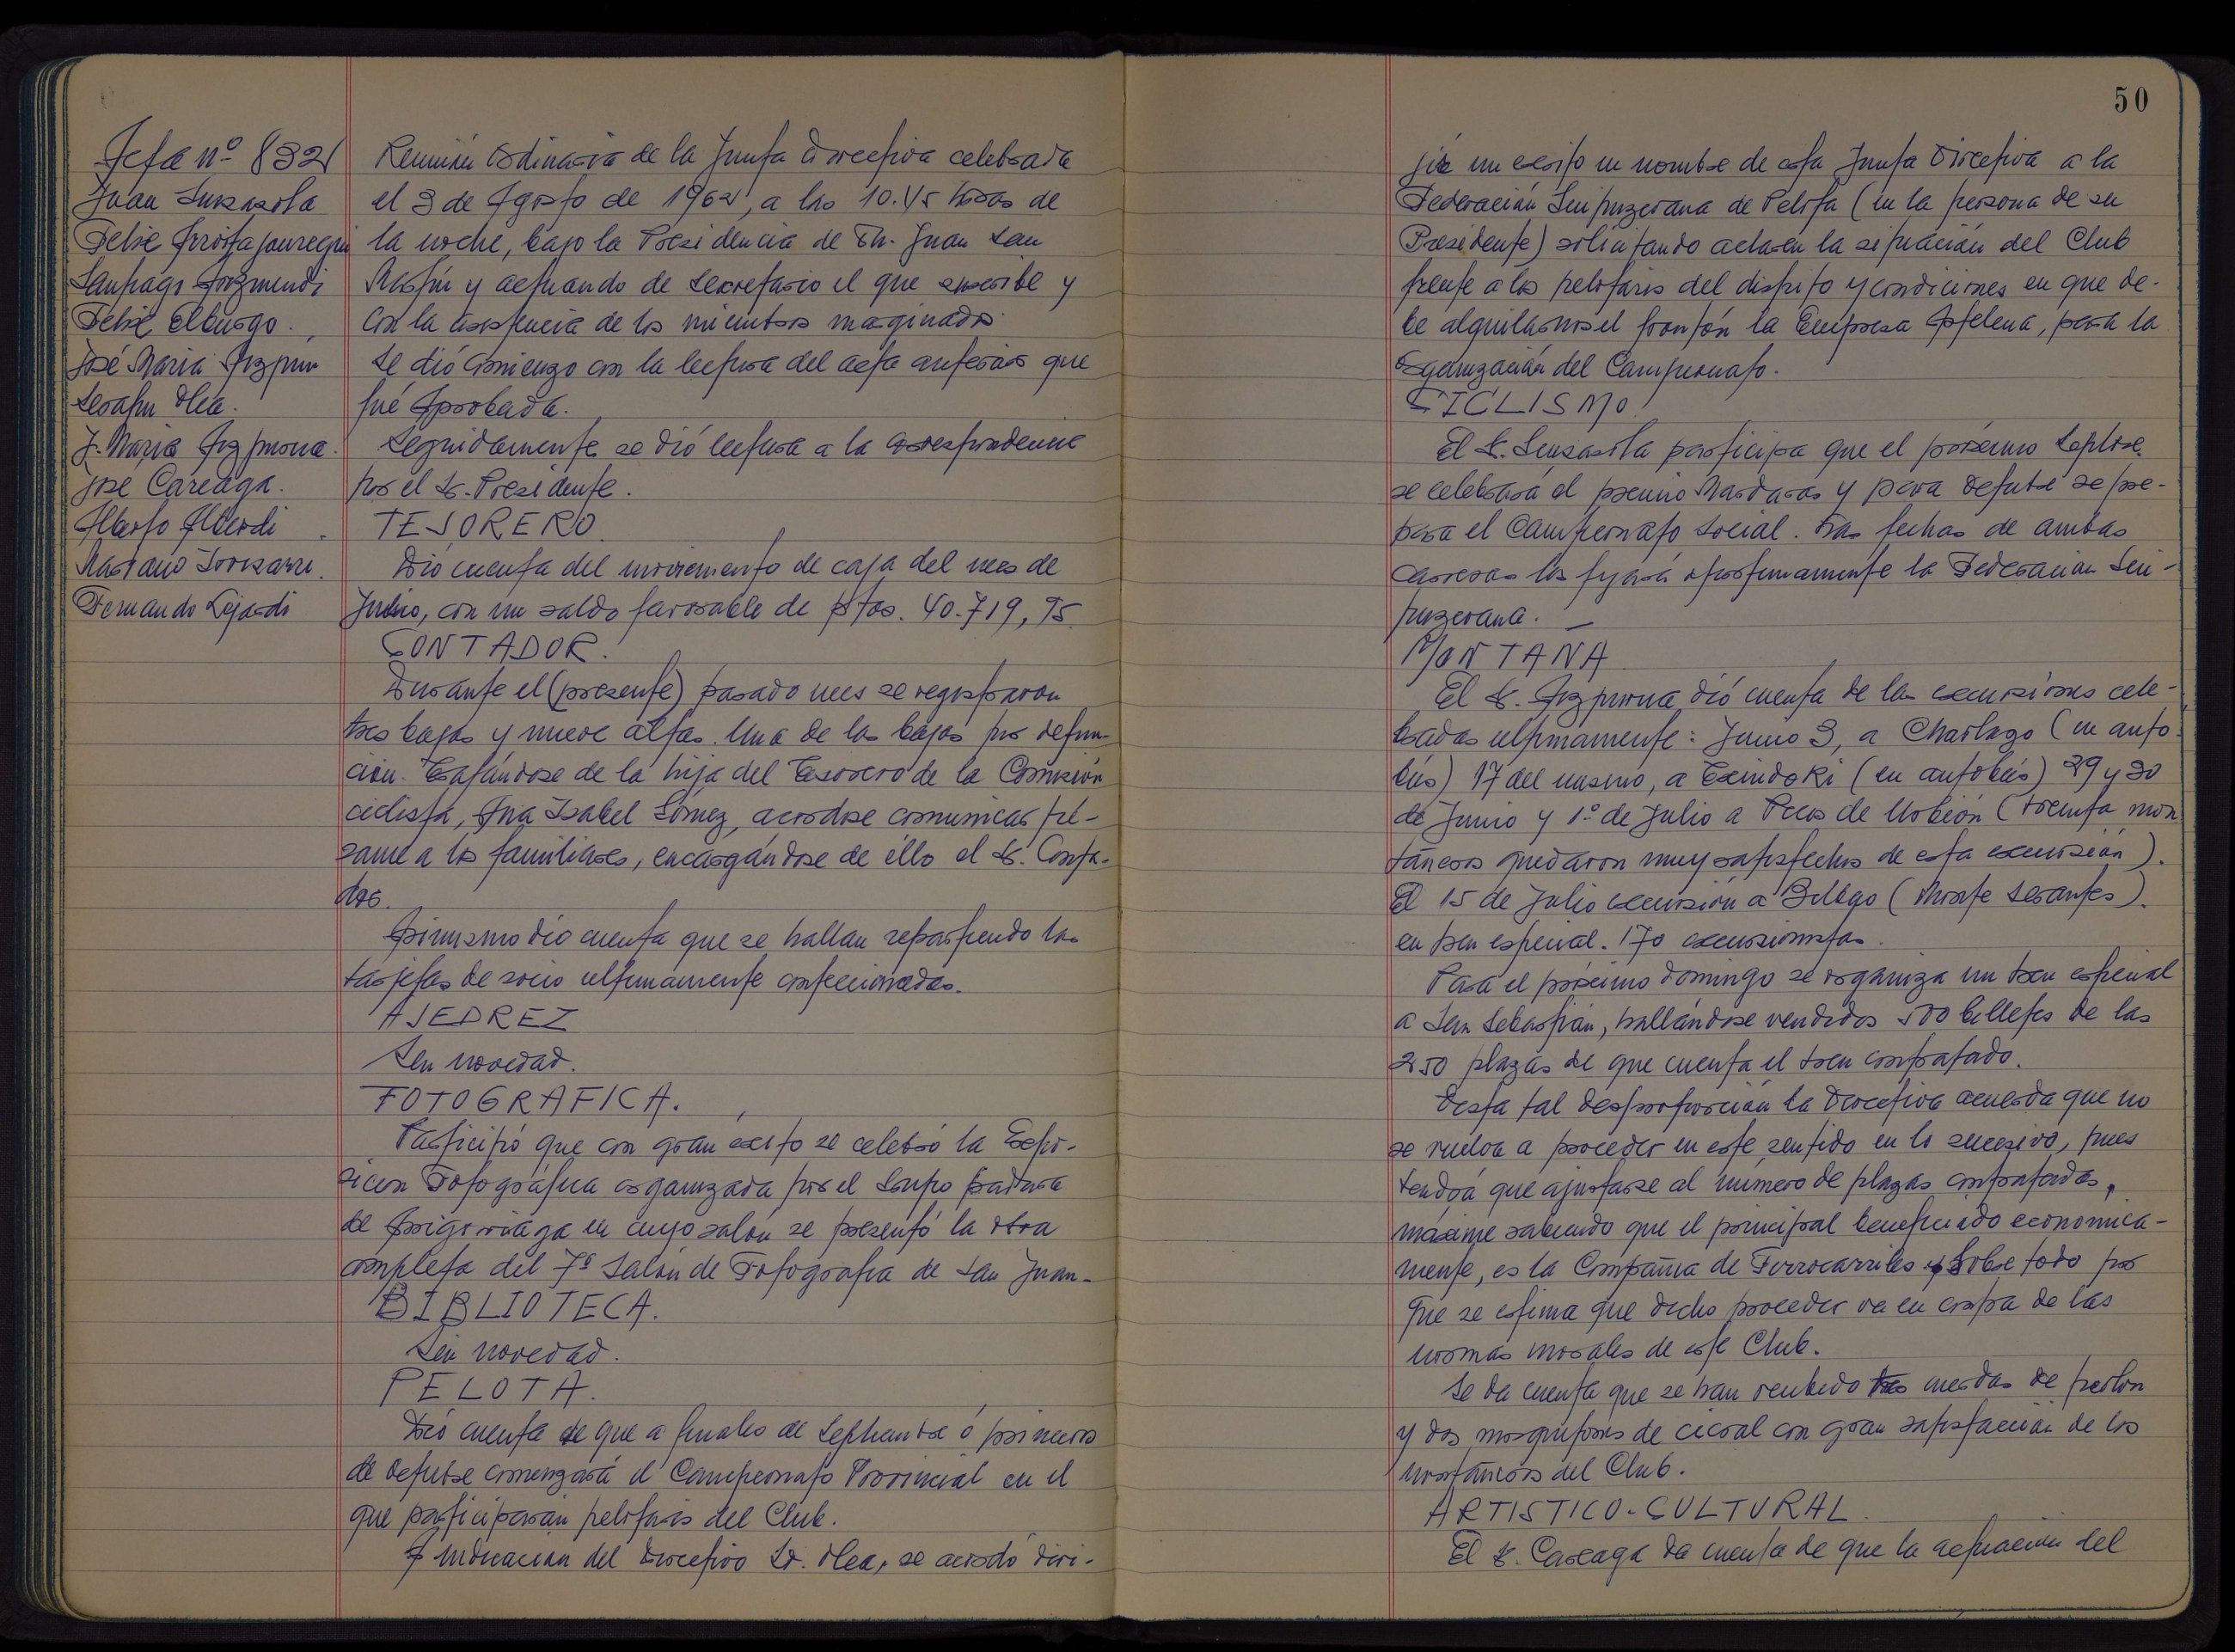 50
Acta nº 832
Juan
Felix Arrieta Jauregui
Santiago Arizmendi
Felix Elburgo.
José Maria
Serafin Olea.
J. Maria Azpurua.
José Careaga.
Alberto Alberdi
Mariano
Fernando Lizardi
Reunión Ordinaria de la Junta Directiva celebrada
el 3 de Agosto de 1962, a las 10.45 horas de
la noche, bajo la Presidencia de Dn. Juan San
Martín y actuando de Secretario el que suscribe y
con la asistencia de los miembros marginados.
Se dió comienzo con la lectura del acta anterior que
fué Aprobada.
Seguidamente se dió lectura a la correspondencia
por el Sr. Presidente.
TESORERO.
Dió cuenta del movimiento de caja del mes de
Julio, con un saldo favorable de ptas. 40.719,95.
CONTADOR.
Durante el (presente) pasado mes se registraron
tres bajas y nueve altas. Una de las bajas por defun-
ción. Tratándose de la hija del Tesorero de la Comisión
ciclista, Ana Isabel Gómez, acordose comunicar pé-
same a los familiares, encargándose de éllo el Sr. Conta-
dor.
Asimismo dió cuenta que se hallan repartiendo las
tarjetas de socio ultimamente confeccionadas.
AJEDREZ
Sin novedad.
FOTOGRAFICA.
Participó que con gran éxito se celebró la Expo-
sicion Fotográfica organizada por el Grupo
de Arrigorriaga en cuyo salón se presentó la obra
completa del 7º Salón de Fotografia de San Juan.
BIBLIOTECA.
Sin novedad.
PELOTA.
Dió cuenta de que a finales de Septiembre ó primeros
de Octubre comenzará el Campeonato Provincial en el
que participarán pelotaris del Club.
A indicación del Directivo Sr. Olea, se acordó diri-
jir un escrito en nombre de esta Junta Directiva a la
Federación Guipuzcoana de Pelota (en la persona de su
Presidente) solicitando aclaren la situación del Club
frente a los pelotaris del distrito y condiciones en que de-
be alquilarnos el frontón la Empresa Astelena, para la
organización del Campeonato.
CICLISMO.
El Sr. participa que el próximo Septbre.
se celebrará el premio y para Octubre se pre-
para el Campeonato Social. Las fechas de ambas
carreras las fijará oportunamente la Federación Gui-
puzcoana.
MONTAÑA
El Sr. Azpurua dió cuenta de las excursiones cele-
bradas ultimamente: Junio 3, a Charlazo (en auto-
bús) 17 del mismo, a Txindoki (en autobús) 29 y 30
de Junio y 1º de Julio a Picos de Urbión (treinta mon-
tañeros quedaron muy satisfechos de esta excursión).
El 15 de Julio excursión a Bilbao (Monte Serantes).
en tren especial. 170 excursionistas.
Para el próximo domingo se organiza un tren especial
a San Sebastián, hallándose vendidos 500 billetes de las
250 plazas de que cuenta el tren contratado.
Vista tal desproporción la Directiva acuerda que no
se vuelva a proceder en este sentido en lo sucesivo, pues
tendrá que ajustarse al número de plazas contratadas,
máxime sabiendo que el principal beneficiado economica-
mente, es la Compañia de Ferrocarriles y sobre todo por
que se estima que dicho proceder va en contra de las
normas morales de este Club.
Se da cuenta que se han recibido tres cuerdas de perlon
y dos mosquetones de cicral con gran satisfacción de los
montañeros del Club.
ARTISTICO-CULTURAL.
El Sr. Careaga da cuenta de que la actuación del